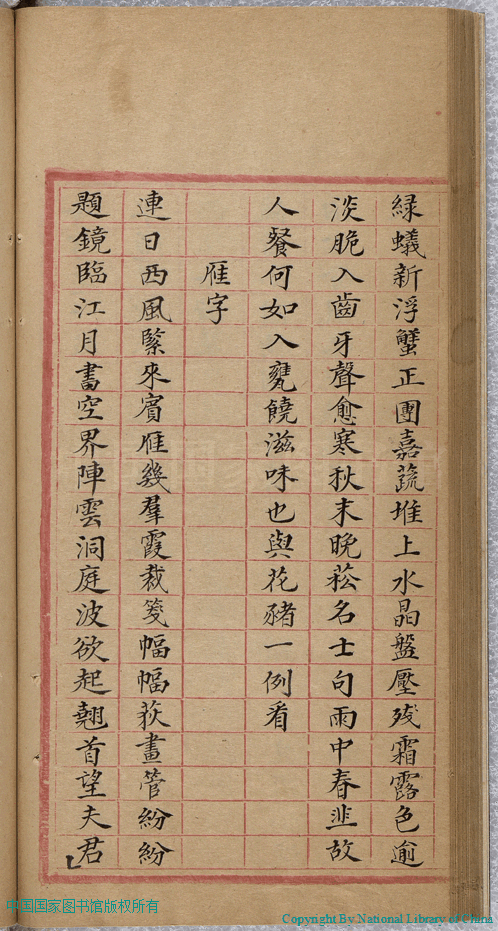 綠蟻新浮蟹正團嘉蔬堆上水晶盤壓殘霜露色逾
淡脆入齒牙聲愈寒秋末晚菘名士句雨中春韭故
人餐何如入甕饒滋味也與花豬一例看
雁字
連日西風緊來賓雁幾羣霞裁箋幅幅荻畫管紛紛
題鏡臨江月書空界陣雲洞庭波欲起翹首望夫君
中国国家图书馆版权所有
Copyright By National Library of China